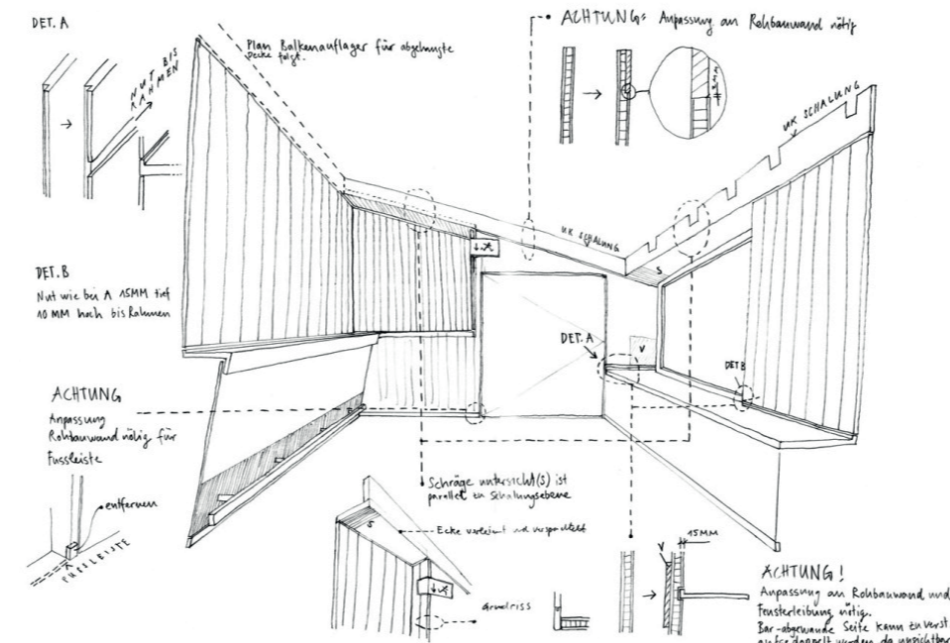 DET. A
NUT BIS
RAHMEN
Plan Balkenauflager für abgehängte
Decke folgt.
ACHTUNG: Anpassung an Rohbauwand nötig
UK SCHALUNG
UK SCHALUNG
S
DET. B
Nut wie bei A 15MM tief
10 MM hoch bis Rahmen
DET. A
V
DET B
ACHTUNG
Anpassung
Rohbauwand nötig für
Fussleiste
entfernen
FUSSLEISTE
Schräge untersicht (S) ist
parallel zu Schalungsebene
S
Ecke verleimt und verspachtelt
Grundriss
V
15MM
ACHTUNG!
Anpassung an Rohbauwand und
Fensterleibung nötig.
Bar-abgewande Seite kann zu verst
aufgedoppelt werden da unsichtbar